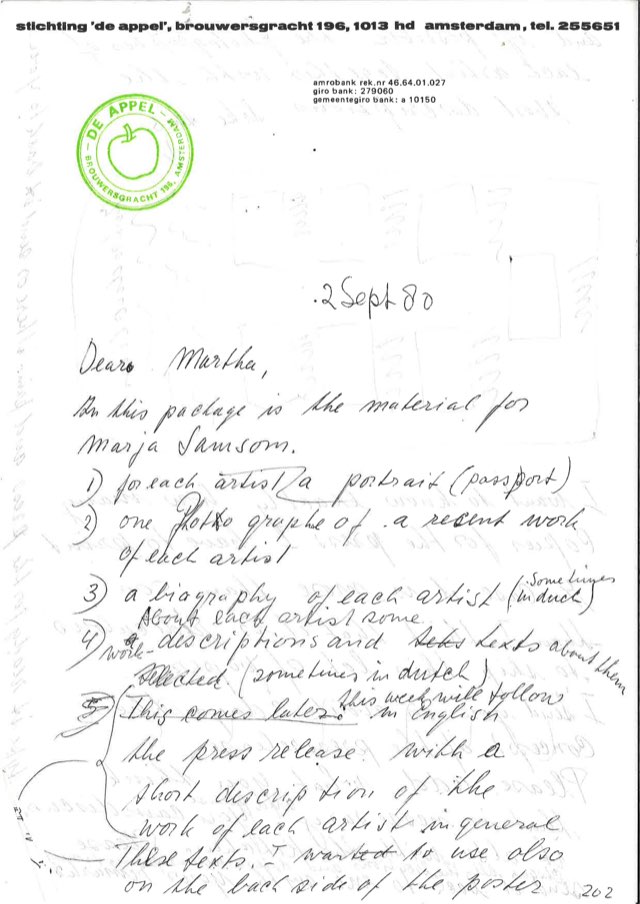 stichting 'de appel', brouwersgracht 196, 1013 hd amsterdam, tel. 255651
amrobank rek.nr 46.64.01.027
giro bank: 279060
gemeentegiro bank: a 10150
DE APPEL
BROUWERSGRACHT 196, AMSTERDAM
2 Sept 80
Dear Martha,
In this package is the material for
Marja Samsom.
1) for each artist a portrait (passport)
2) one photo graphe of a recent work
of each artist
3) a biography of each artist (sometimes in dutch)
About each artist some
4) work descriptions and texts about them
selected (sometimes in dutch)
5) This comes later. this week will follow
in English
the press release with a
short description of the
work of each artist in general
These texts I wanted to use also
on the back side of the poster
202